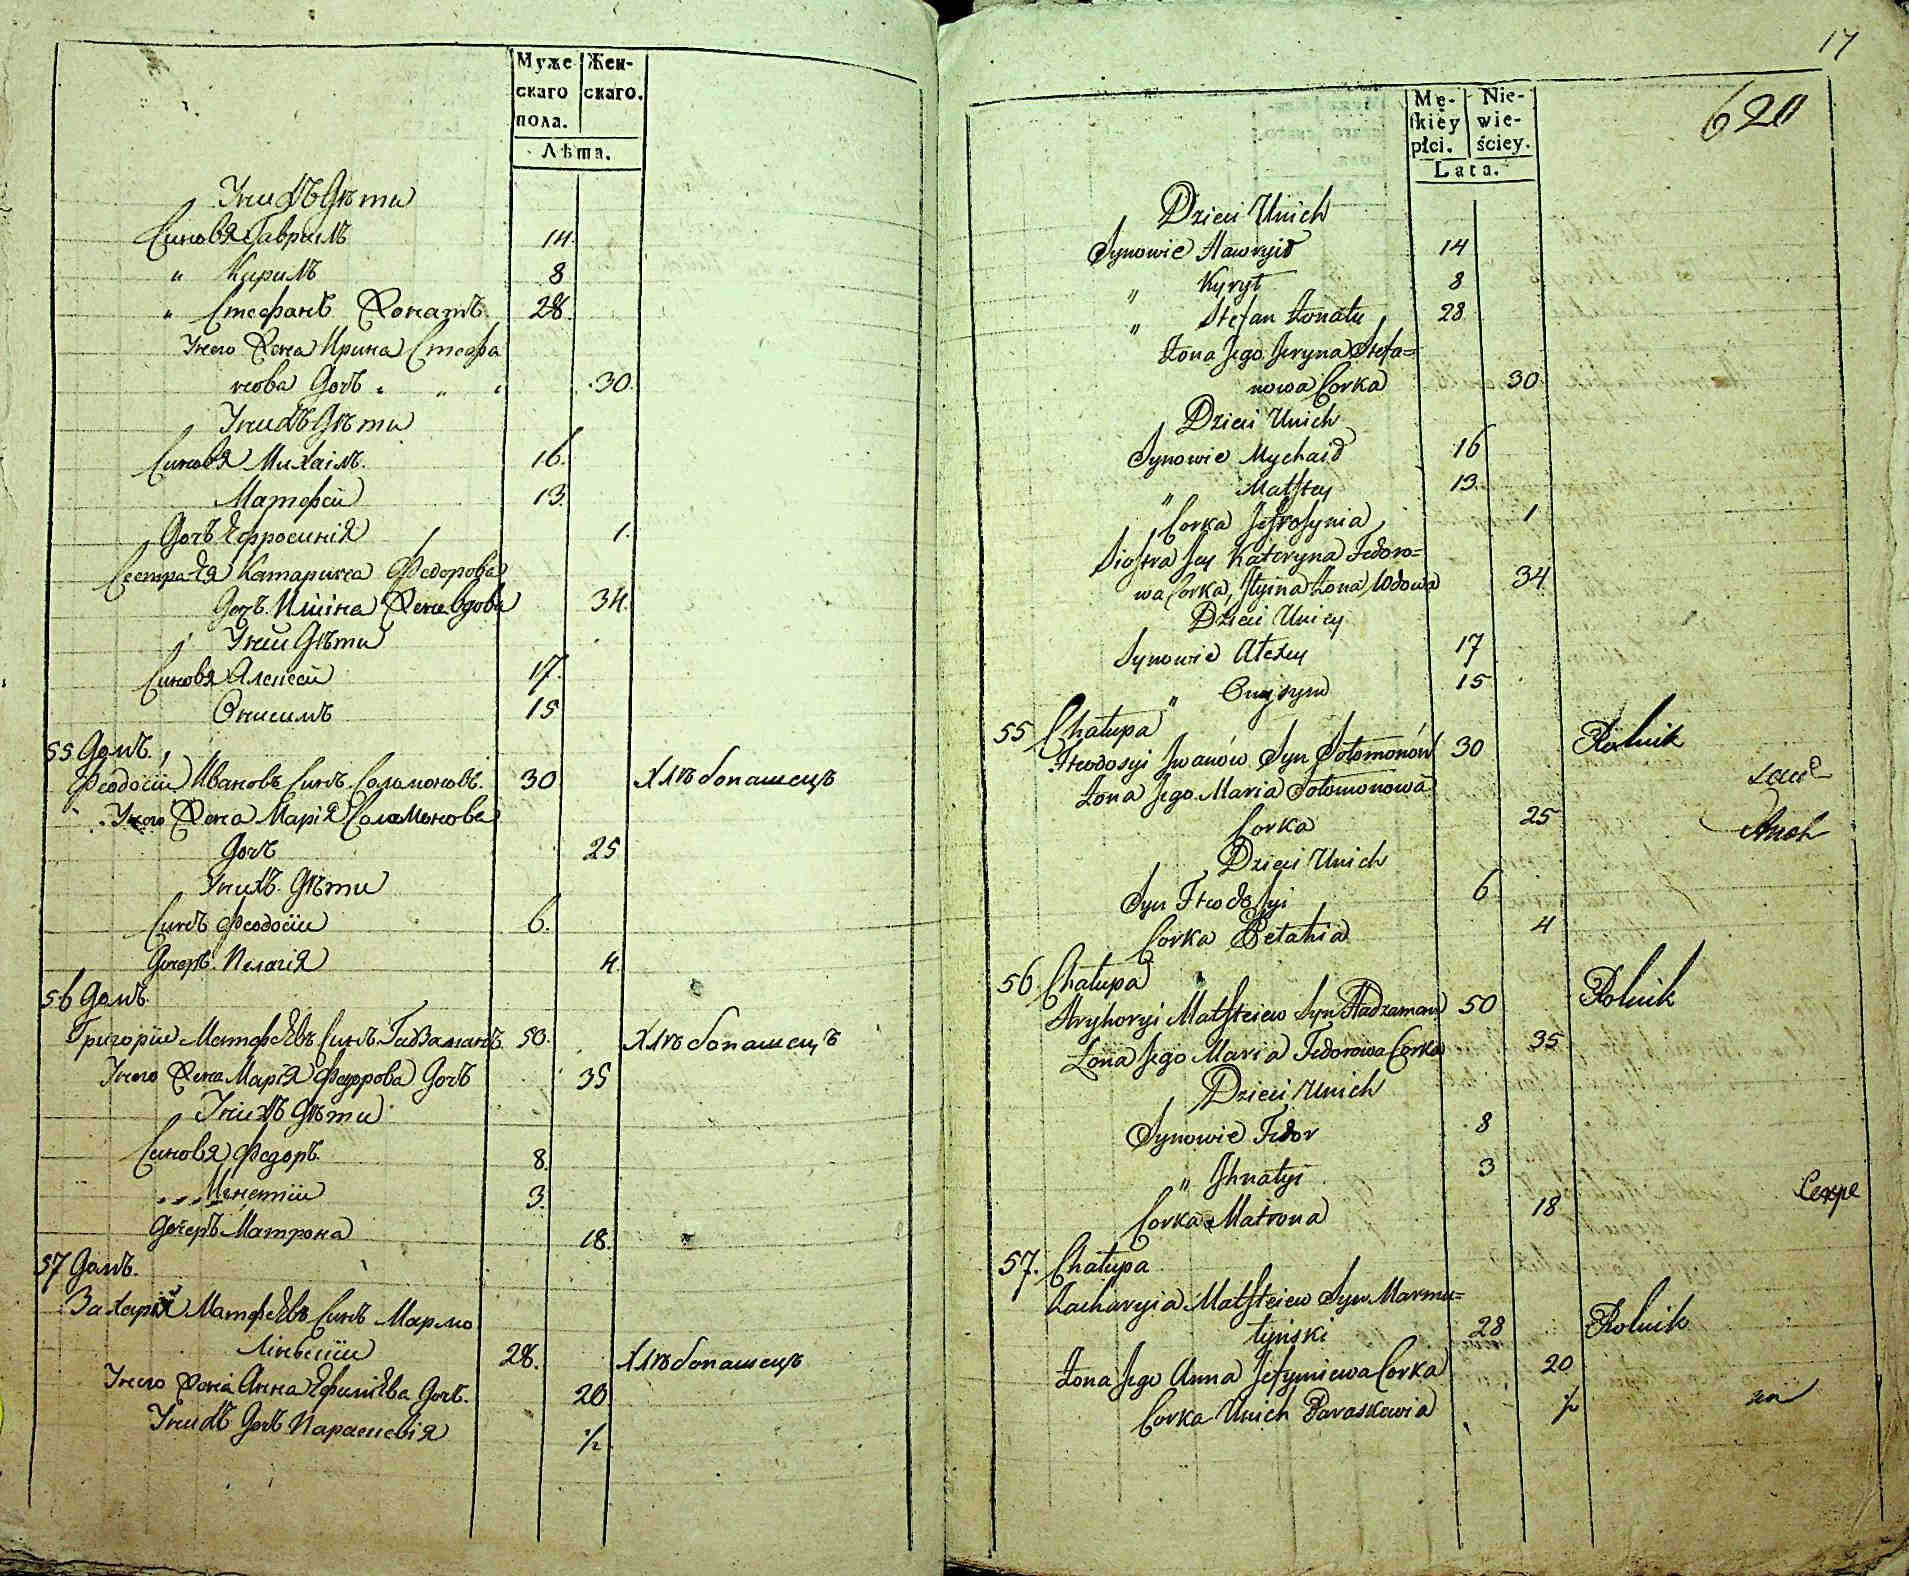 Муже
скаго
пола.
Жен-
скаго.
Лѣта.
У нихъ Дѣти
Синовя Гаврилъ 14
" Кирилъ 8
" Стефанъ Женатъ. 28.
У него Жена Ирина Стефа
нова Дочь " " " 30.
У нихъ Дѣти
Синовя Михаилъ. 16.
Матфей 13.
Дочь Ефросинія 1.
Сестра Ея Катарина Федорова
Дочь. Илііна Жена Вдова 34.
У ней Дѣти
Синовя Алексей 17.
Онисимъ 15
55 Домъ.
Феодосіи Ивановъ Синъ Соломоновъ. 30 Хлѣбопашецъ
У него Жена Марія Соломонова
Дочь 25
У нихъ Дѣти
Синъ Феодосіи 6.
Дочерь. Пелагія 4.
56 Домъ.
Григоріи Матфѣевъ Синъ Гадзаманъ 50. Хлѣбопашецъ
У него Жена Марія Федорова Дочь 35
У нихъ Дѣти
Синовя Федоръ. 8.
" " " Игнатіи 3.
Дочерь Матрона 18.
57 Домъ.
Захарій Матфѣевъ Синъ Мармо
28. Хлѣбопашецъ
У него Жена Анна Ефимѣва Дочь. 20
У нихъ Дочь Параскевія 1/2
17
620
Mę-
skiéy
płci.
Nie-
wie-
ściey.
Lata.
Dzieci Unich
Synowie Hawryił 14
" Kyrył 8
" Stefan Żonaty 28
Żona Jego Jeryna Stefa=
nowa Corka 30
Dzieci Unich
Synowie Mychaił 16
" Matftey 13
Corka Jefrosynia 1
Siostra Jey Kateryna Fedoro=
wa Corka, Ilyina Żona Wdowa 34
Dzieci Uniey
Synowie Alexey 17
" Onysym 15
55 Chałupa
Fteodosyi Jwanów Syn Sołomonów 30 Rolnik
Żona Jego Maria Sołomonowa
Corka 25
Dzieci Unich
Syn Fteodosyi 6
Corka Pełahia 4
56 Chałupa
Hryhoryi Matfteiew Syn Hadzaman 50 Rolnik
Żona Jego Maria Fedorowa Corka 35
Dzieci Unich
Synowie Fedor 8
" Jhnatyi 3
Corka Matrona 18
57. Chałupa
Zacharyia Matfteiew Syn Marmu=
łyński 28 Rolnik
Żona Jego Anna Jefymiewa Corka 20
Corka Unich Paraskewia 1/2